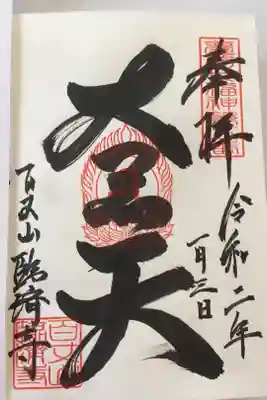 奉拝
令和二年
一月三日
大黒天
百丈山臨済寺